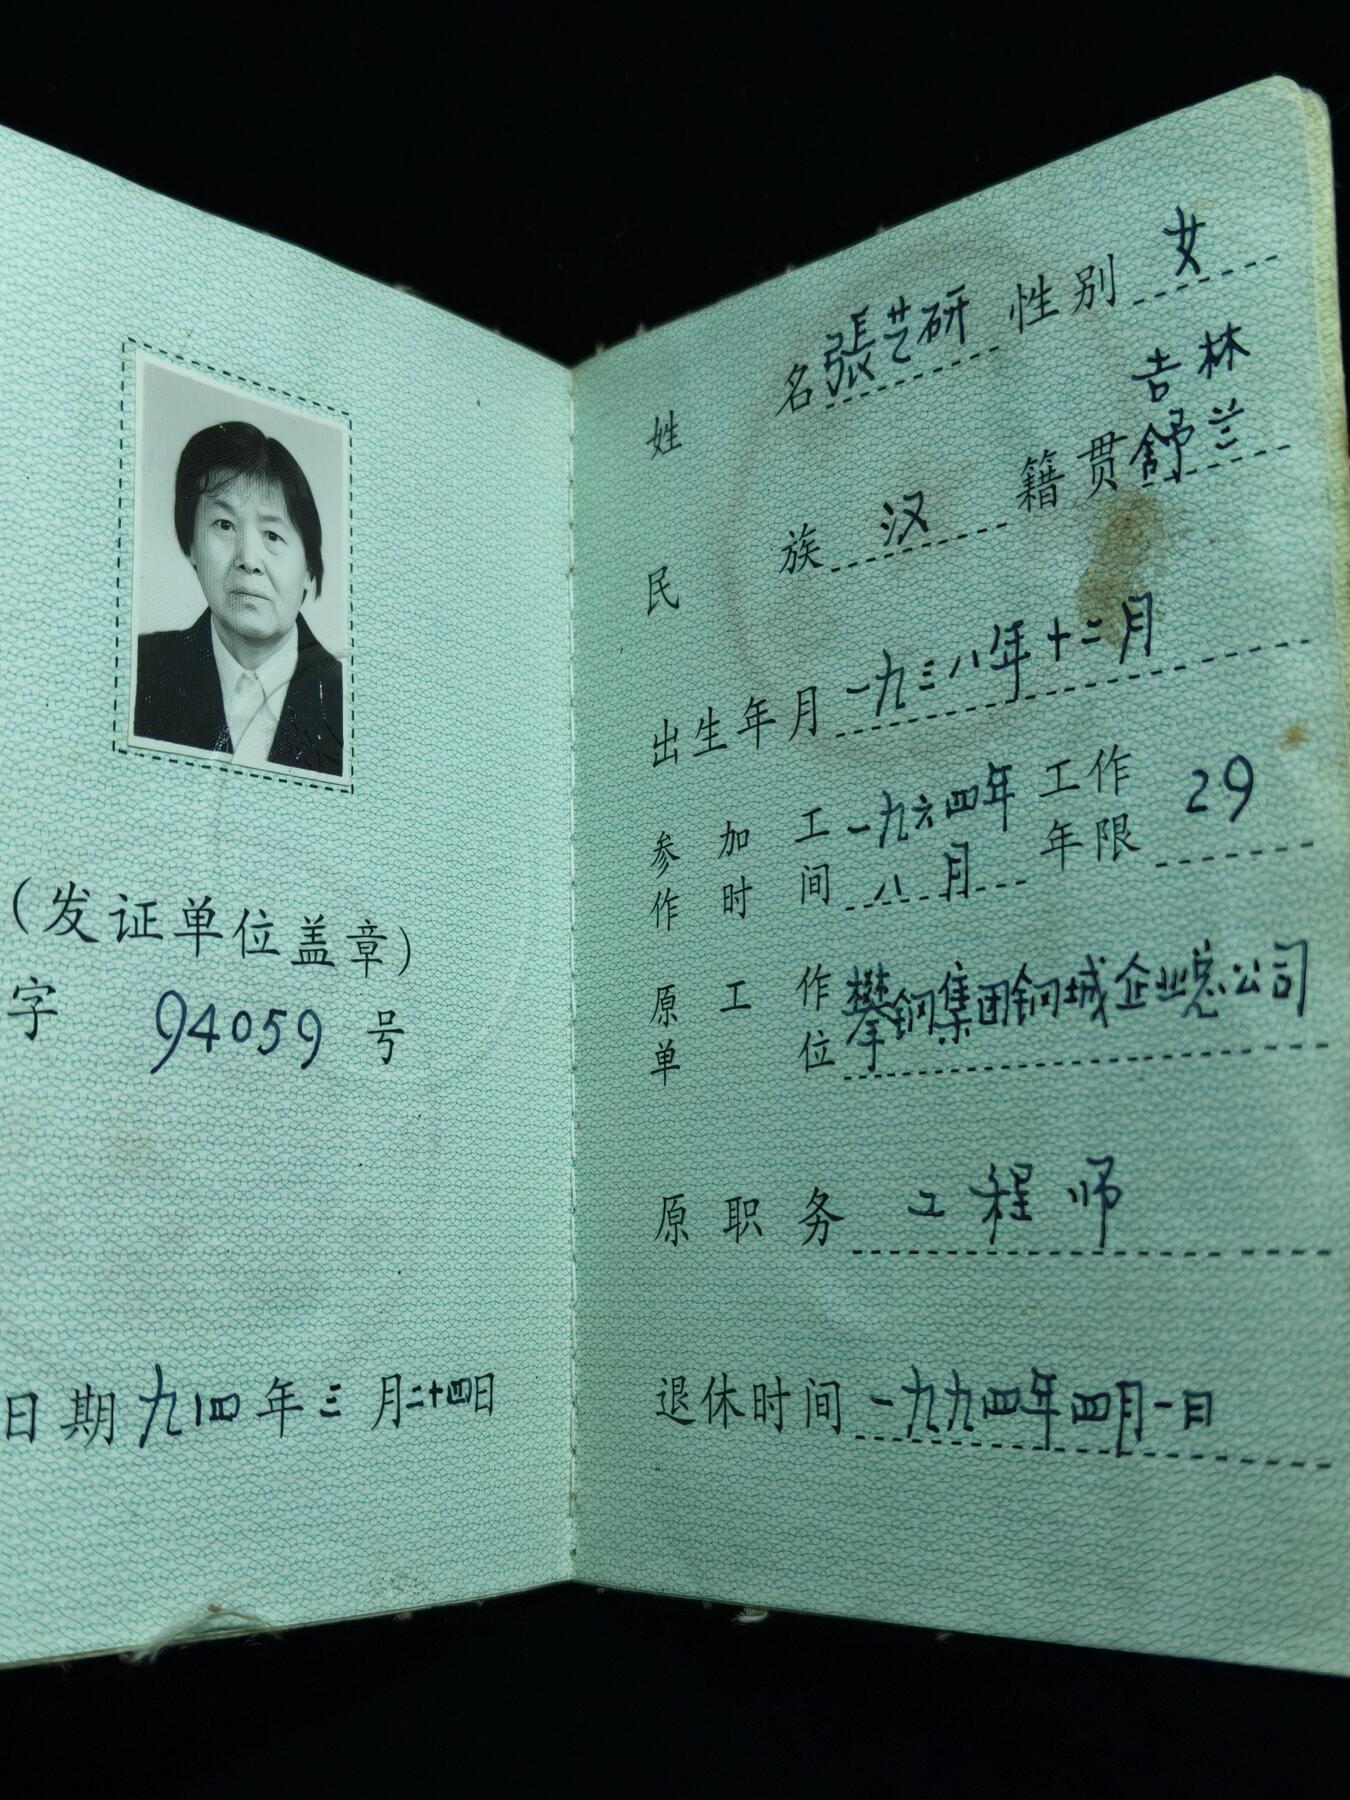 (发证单位盖章)
字 94059 号
日期九四年三月二十四日
姓名 張艺研 性别 女
民族 汉 籍贯 吉林舒兰
出生年月 一九三八年十二月
参加工作时间 一九六四年八月 工作年限 29
原工作单位 攀钢集团钢城企业总公司
原职务 工程师
退休时间 一九九四年四月一日